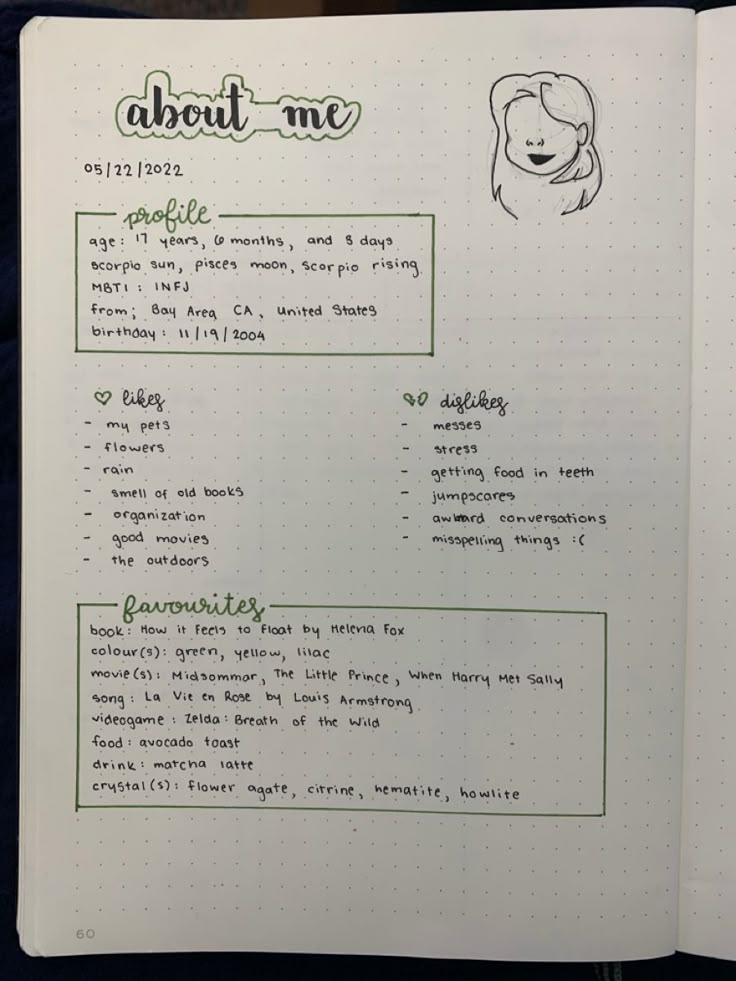 about me
05/22/2022
profile
age: 17 years, 6 months, and 3 days
scorpio sun, pisces moon, scorpio rising
MBTI: INFJ
from; Bay Area CA, United States
birthday: 11/19/2004
likes
- my pets
- flowers
- rain
- smell of old books
- organization
- good movies
- the outdoors
dislikes
- messes
- stress
- getting food in teeth
- jumpscares
- awkward conversations
- misspelling things :(
favourites
book: How it Feels to Float by Helena Fox
colour(s): green, yellow, lilac
movie(s): Midsommar, The Little Prince, When Harry Met Sally
song: La Vie en Rose by Louis Armstrong
videogame: Zelda: Breath of the Wild
food: avocado toast
drink: matcha latte
crystal(s): flower agate, citrine, hematite, howlite
60